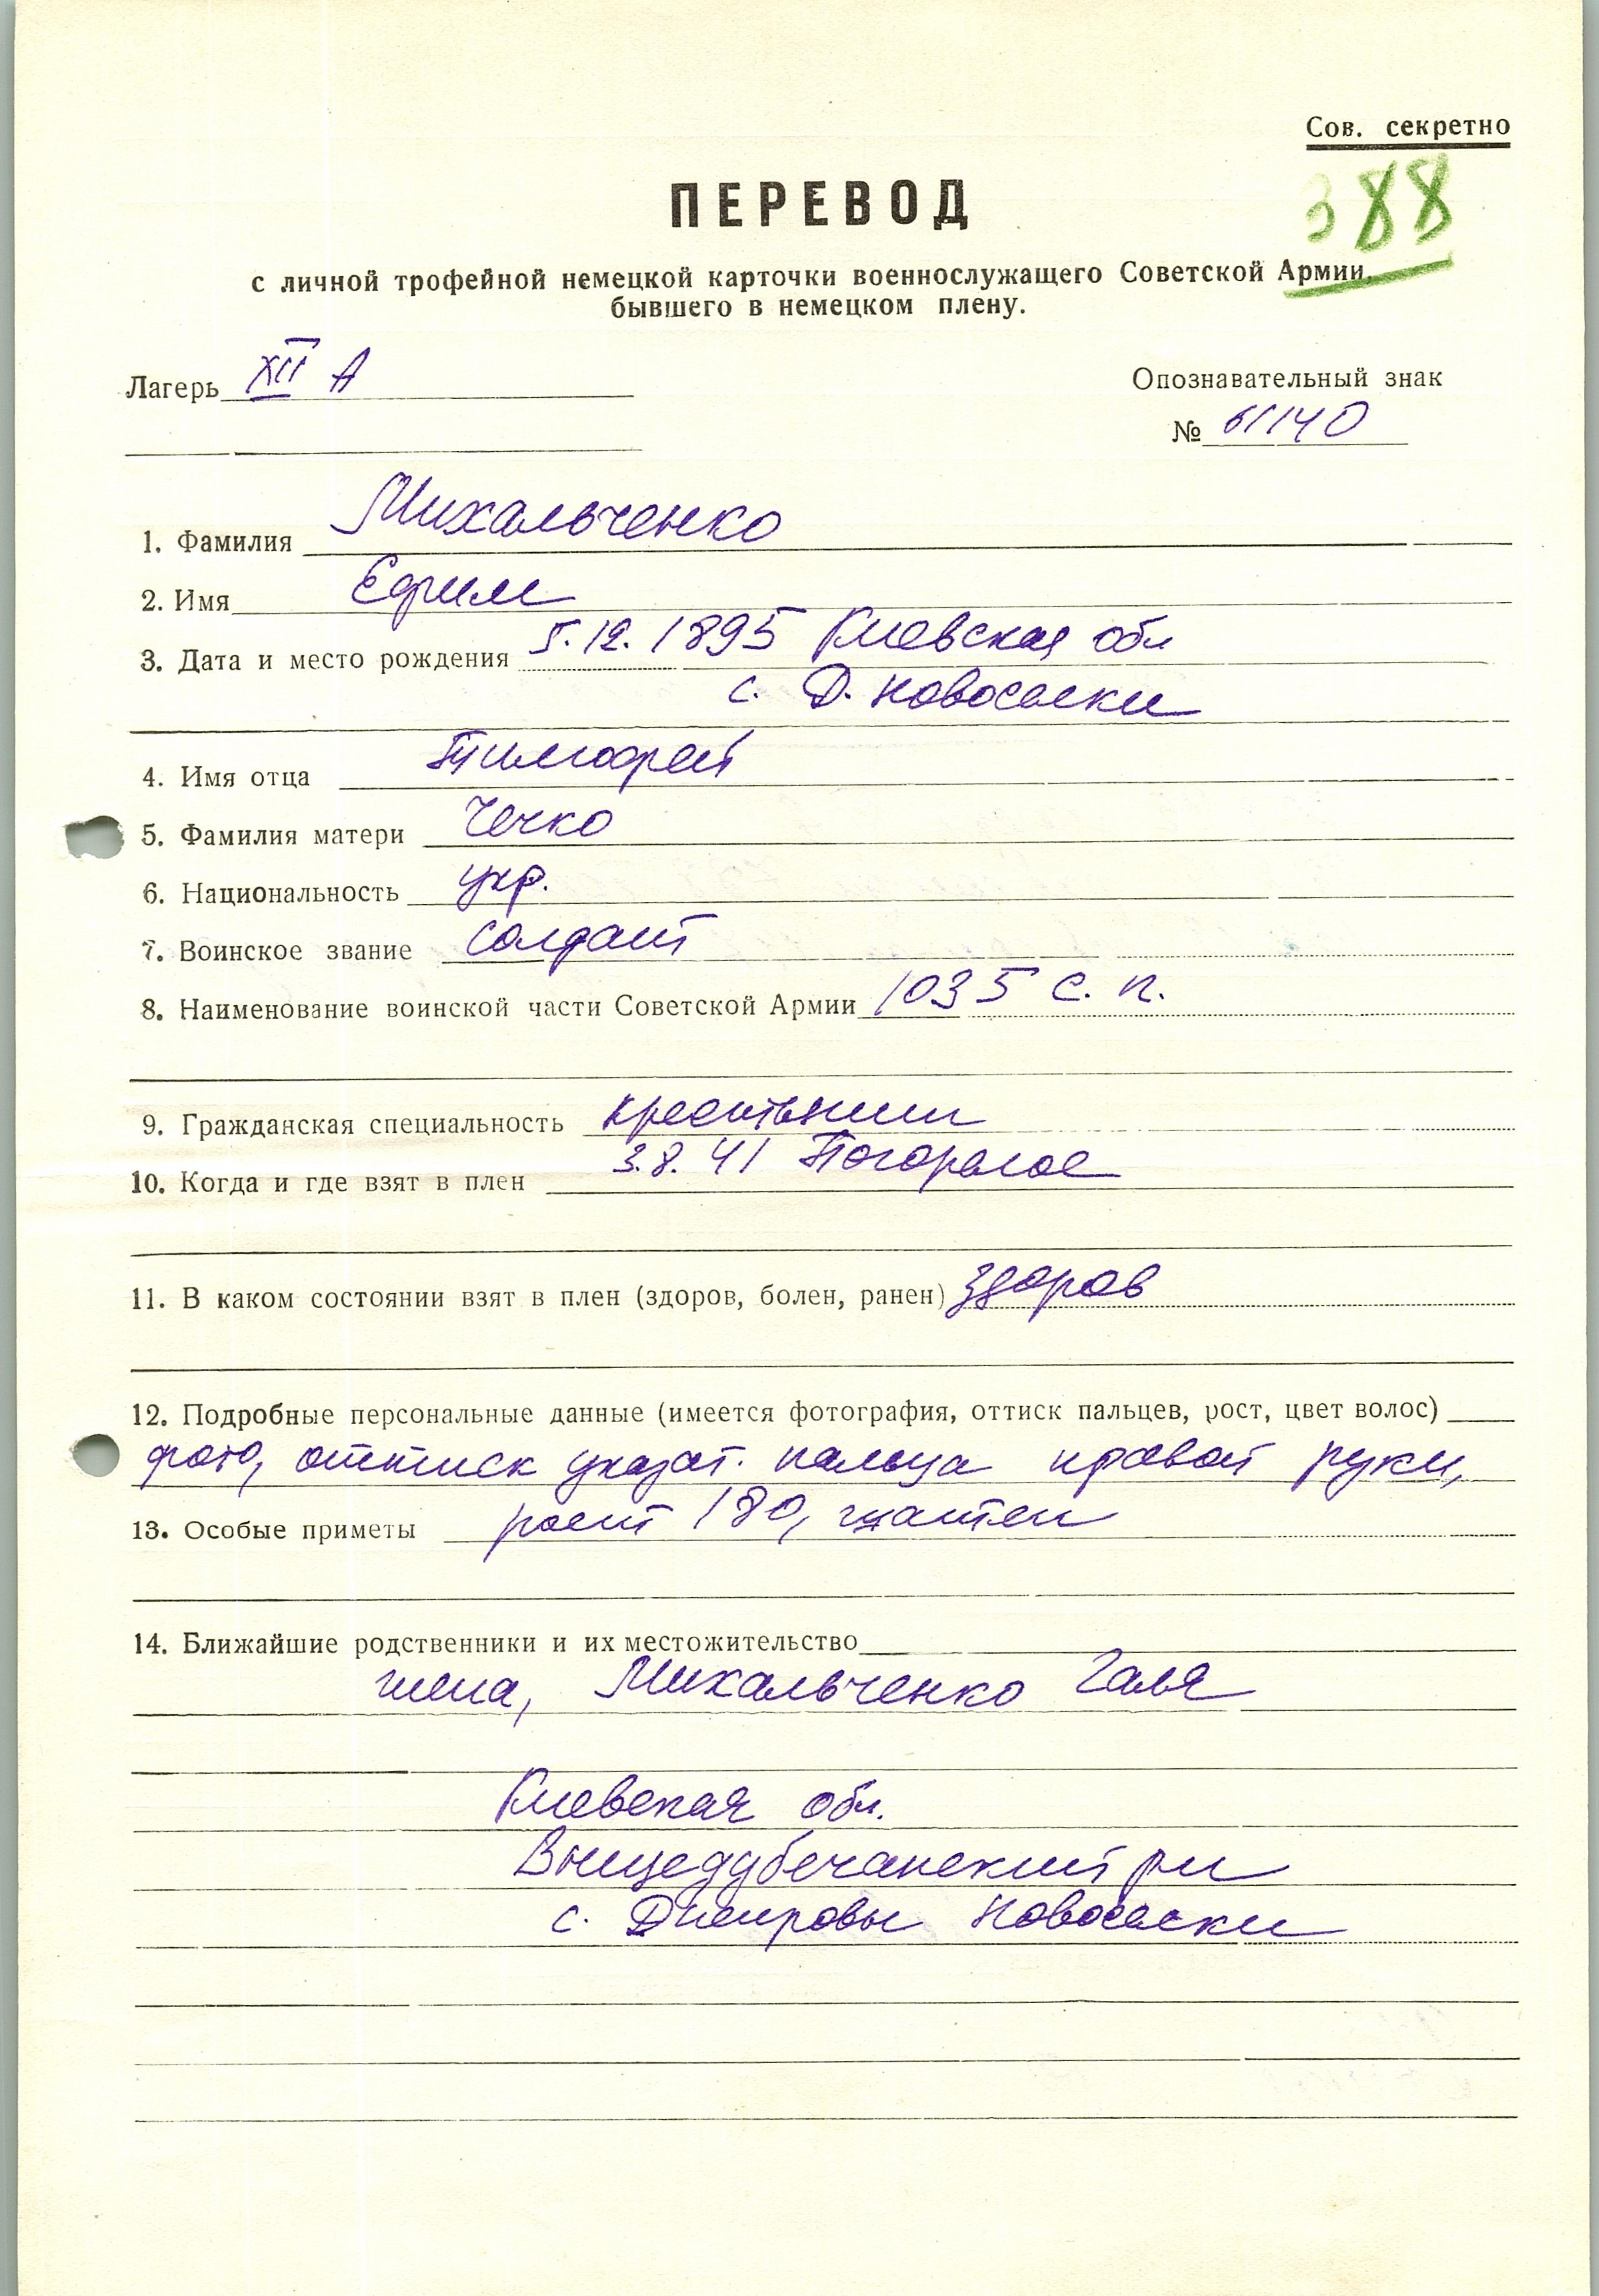 Сов. секретно
388
ПЕРЕВОД
с личной трофейной немецкой карточки военнослужащего Советской Армии,
бывшего в немецком плену.
Лагерь XII А
Опознавательный знак
№ 61140
1. Фамилия Михальченко
2. Имя Ефим
3. Дата и место рождения 5.12.1895 Киевская обл
с. Д. Новоселки
4. Имя отца Тимофей
5. Фамилия матери Чечко
6. Национальность укр.
7. Воинское звание солдат
8. Наименование воинской части Советской Армии 1035 с. п.
9. Гражданская специальность крестьянин
10. Когда и где взят в плен 3.8.41 Погорелое
11. В каком состоянии взят в плен (здоров, болен, ранен) здоров
12. Подробные персональные данные (имеется фотография, оттиск пальцев, рост, цвет волос)
фото, оттиск указат. пальца правой руки,
13. Особые приметы рост 180, шатен
14. Ближайшие родственники и их местожительство
жена, Михальченко Галя
Киевская обл.
Вышедубечанский рн
с. Днепровы Новоселки